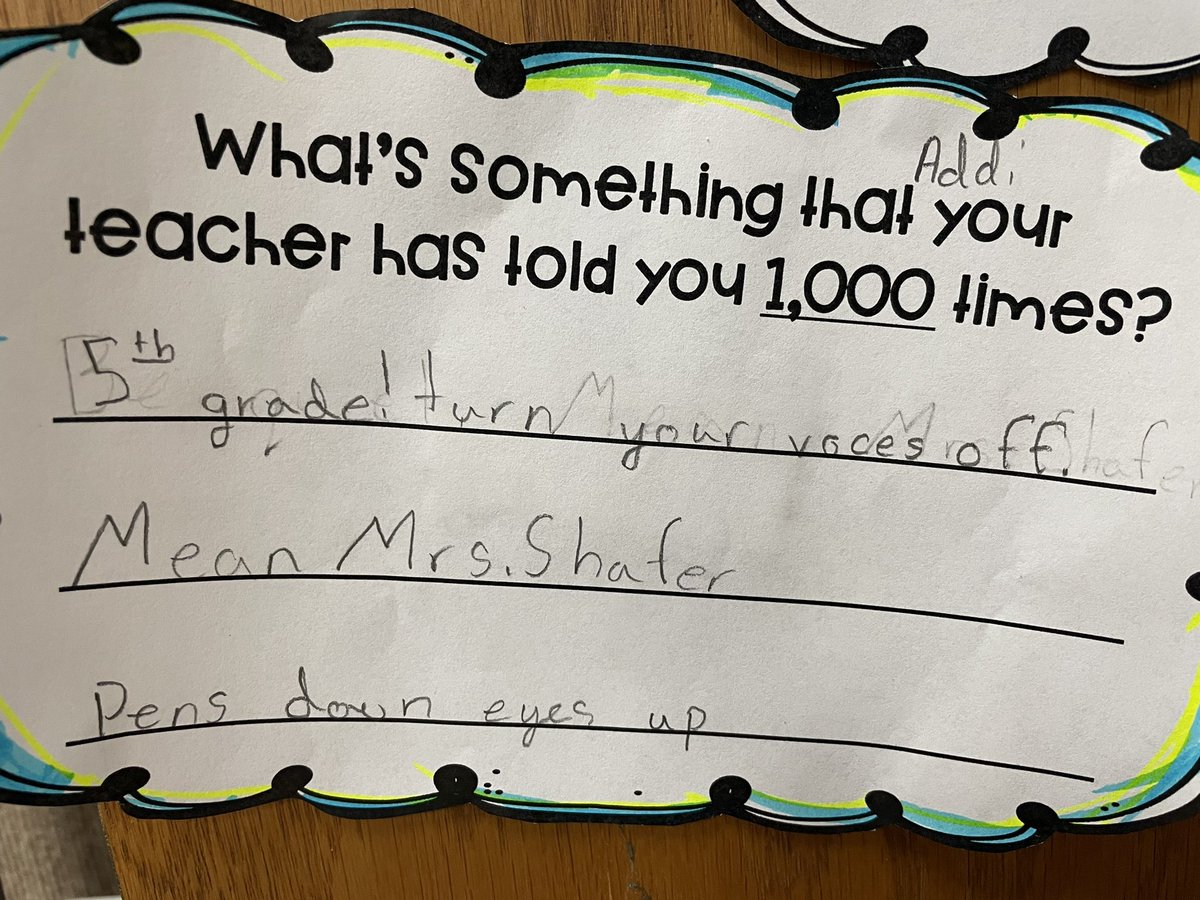 Addi
What's something that your
teacher has told you 1,000 times?
5th grade! turn your voces off.
Mean Mrs. Shafer
Pens down eyes up